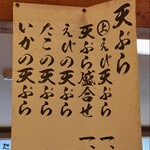 天ぷら
上天ぷら 一、
天ぷら盛合せ 一、
えびの天ぷら
たこの天ぷら
いかの天ぷら